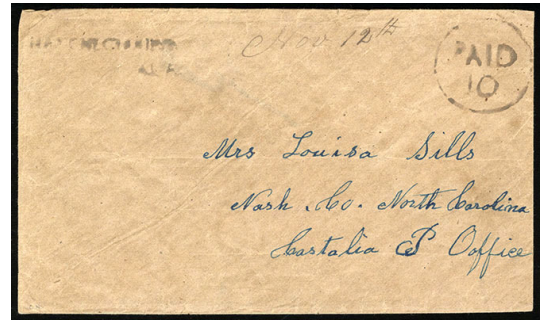 Nov 12th
PAID
10
Mrs Louisa Sills
Nash Co. North Carolina
Castalia P Ooffice